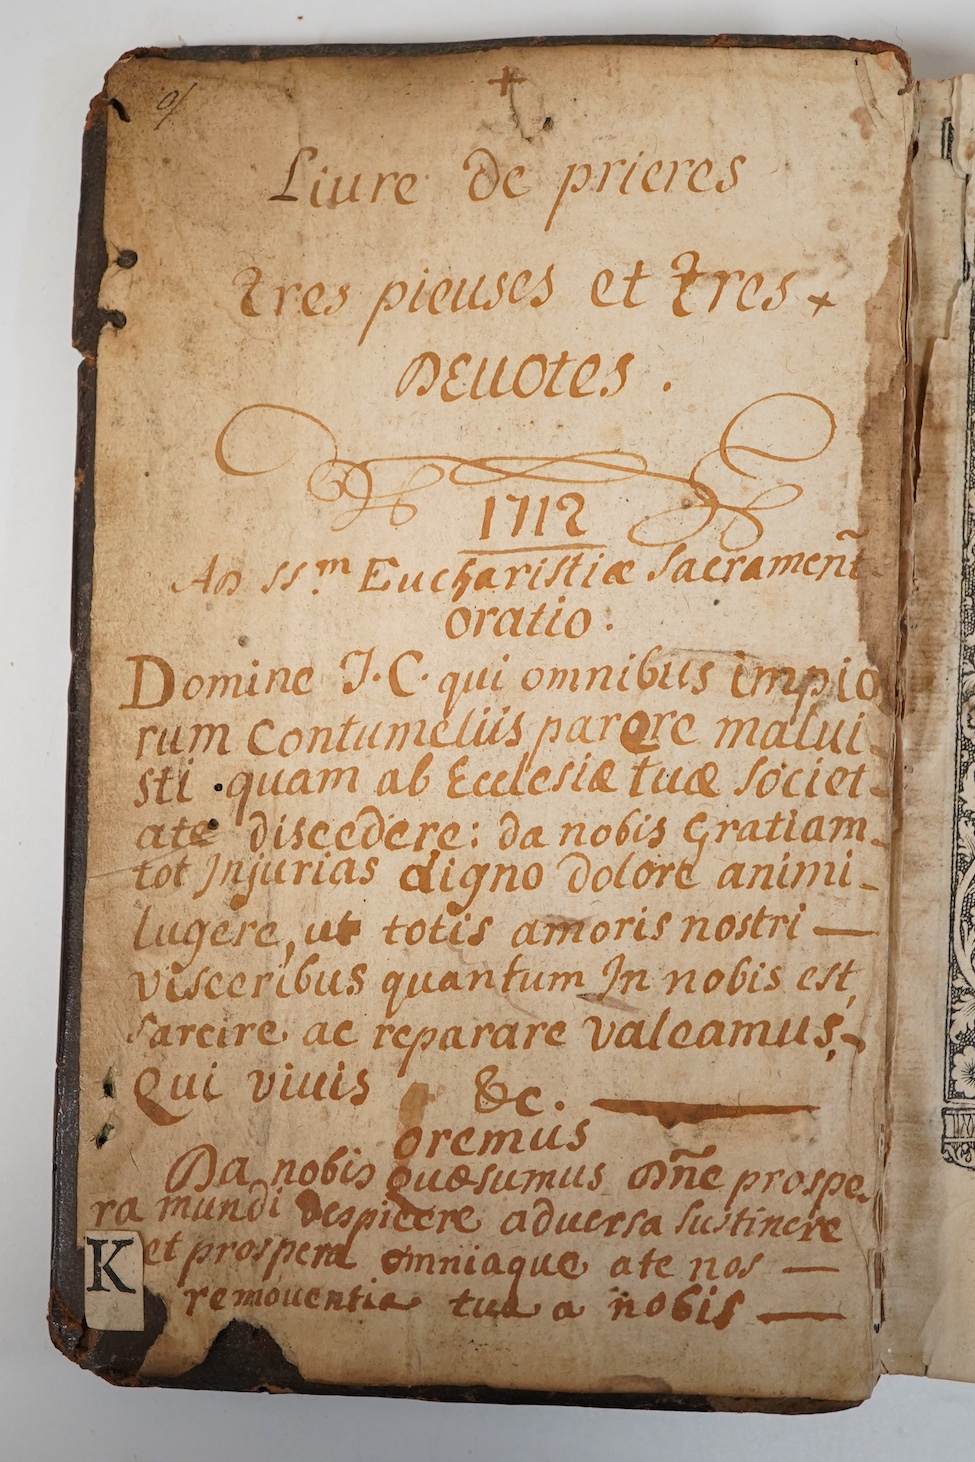 +
Liure de prieres
tres pieuses et tres +
DEuotes .
1712
AD ss.m Eucharistiæ Sacrament̃
oratio :
Domine J. C. qui omnibus impio
rum contumeliis parcere malui-
sti quam ab Ecclesiæ tuæ societ-
ate discedere: da nobis Gratiam-
tot Injurias digno dolore animi-
lugere, ut totis amoris nostri —
visceribus quantum In nobis est,
Sarcire ac reparare valeamus,-
Qui viuis &c.
oremus
Da nobis quæsumus Dñe prospe-
ra mundi despicere aduersa sustinere
et prospera omniaque ate nos —
removentia tua a nobis —
K